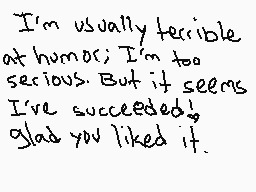 I'm usually terrible
at humor; I'm too
serious. But it seems
I've succeeded!
glad you liked it.